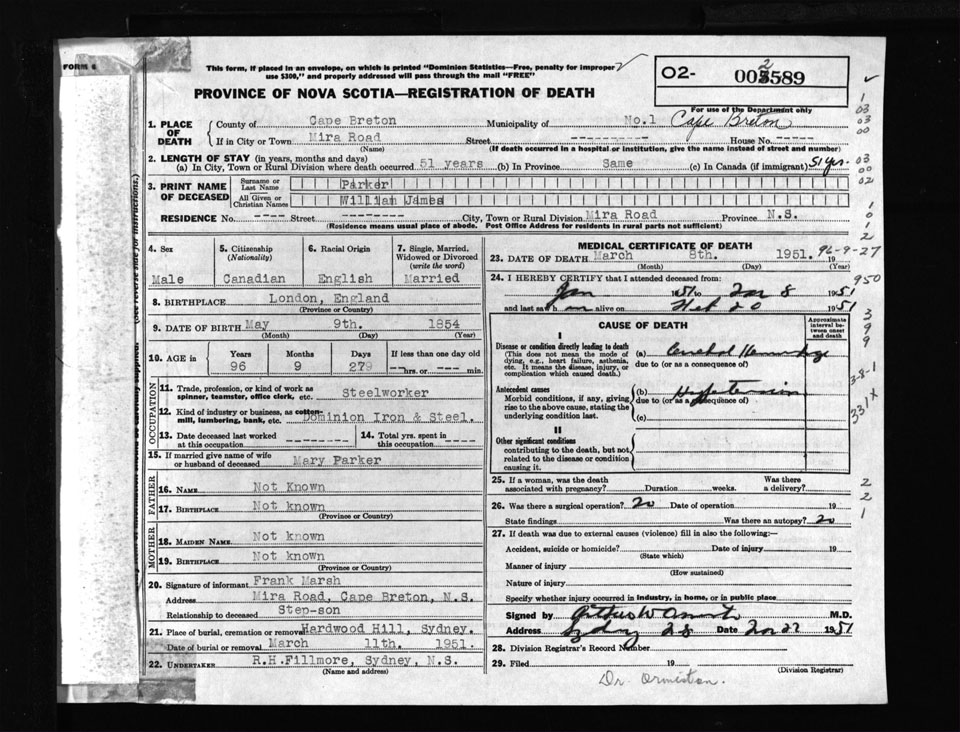 FORM 6
This form, if placed in an envelope, on which is printed "Dominion Statistics—Free, penalty for improper
use $300," and properly addressed will pass through the mail "FREE"
PROVINCE OF NOVA SCOTIA—REGISTRATION OF DEATH
O2- 589
For use of the Department only
1. PLACE OF DEATH
County of Cape Breton Municipality of No.1 Cape Breton
If in City or Town Mira Road Street --------- House No. ----
(Name) (If death occurred in a hospital or institution, give the name instead of street and number)
2. LENGTH OF STAY (in years, months and days)
(a) In City, Town or Rural Division where death occurred 51 years (b) In Province Same (c) In Canada (if immigrant) 51 yrs.
3. PRINT NAME OF DECEASED
Surname or Last Name Parker
All Given or Christian Names William James
RESIDENCE No. ---- Street --------- City, Town or Rural Division Mira Road Province N.S.
(Residence means usual place of abode. Post Office Address for residents in rural parts not sufficient)
4. Sex
Male
5. Citizenship
(Nationality)
Canadian
6. Racial Origin
English
7. Single, Married, Widowed or Divorced
(write the word)
Married
8. BIRTHPLACE London, England
(Province or Country)
9. DATE OF BIRTH May 9th. 1854
(Month) (Day) (Year)
10. AGE in Years Months Days If less than one day old
96 9 279 ---hrs. or --- min.
OCCUPATION
11. Trade, profession, or kind of work as
spinner, teamster, office clerk, etc. Steelworker
12. Kind of industry or business, as cotton-
mill, lumbering, bank, etc. Dominion Iron & Steel.
13. Date deceased last worked
at this occupation --------
14. Total yrs. spent in
this occupation ----
15. If married give name of wife
or husband of deceased Mary Parker
FATHER
16. NAME Not Known
17. BIRTHPLACE Not known
(Province or Country)
MOTHER
18. MAIDEN NAME Not known
19. BIRTHPLACE Not known
(Province or Country)
20. Signature of informant Frank Marsh
Address Mira Road, Cape Breton, N.S.
Relationship to deceased Step-son
21. Place of burial, cremation or removal Hardwood Hill, Sydney.
Date of burial or removal March 11th. 1951.
22. UNDERTAKER R.H.Fillmore, Sydney, N.S.
(Name and address)
MEDICAL CERTIFICATE OF DEATH
23. DATE OF DEATH March 8th. 1951. 19
(Month) (Day) (Year)
96-9-27
24. I HEREBY CERTIFY that I attended deceased from:
Jan 1951 to 8 1951
and last saw h m alive on 20 1951
950
CAUSE OF DEATH
Approximate interval between onset and death
Disease or condition directly leading to death
(This does not mean the mode of
dying, e.g., heart failure, asthenia,
etc. It means the disease, injury, or
complication which caused death.)
(a) Cerebral Hemorrhage
due to (or as a consequence of)
Antecedent causes
Morbid conditions, if any, giving
rise to the above cause, stating the
underlying condition last.
(b) Hypertension
due to (or as a consequence of)
(c)
II
Other significant conditions
contributing to the death, but not
related to the disease or condition
causing it.
331x
25. If a woman, was the death
associated with pregnancy? Duration weeks. Was there
a delivery?
26. Was there a surgical operation? No Date of operation 19
State findings Was there an autopsy? No
27. If death was due to external causes (violence) fill in also the following:—
Accident, suicide or homicide? Date of injury 19
(State which)
Manner of injury
(How sustained)
Nature of injury
Specify whether injury occurred in industry, in home, or in public place
Signed by M.D.
Address Sydney N.S. Date 27 1951
28. Division Registrar's Record Number
29. Filed 19
(Division Registrar)
Dr. Ormiston.